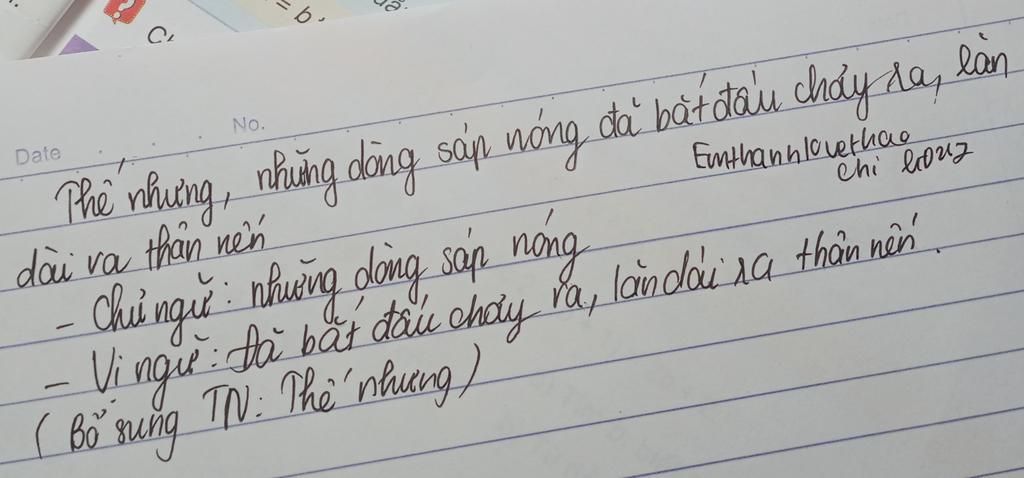 = b,
C,
Date No.
Thế nhưng, những dòng sáp nóng đã bắt đầu chảy ra, lăn
Emthanhlovethao
chi
dài ra thân nến
- Chủ ngữ: những dòng sáp nóng
- Vị ngữ: Đã bắt đầu chảy ra, lăn dài ra thân nến.
(Bổ sung TN: Thế nhưng)